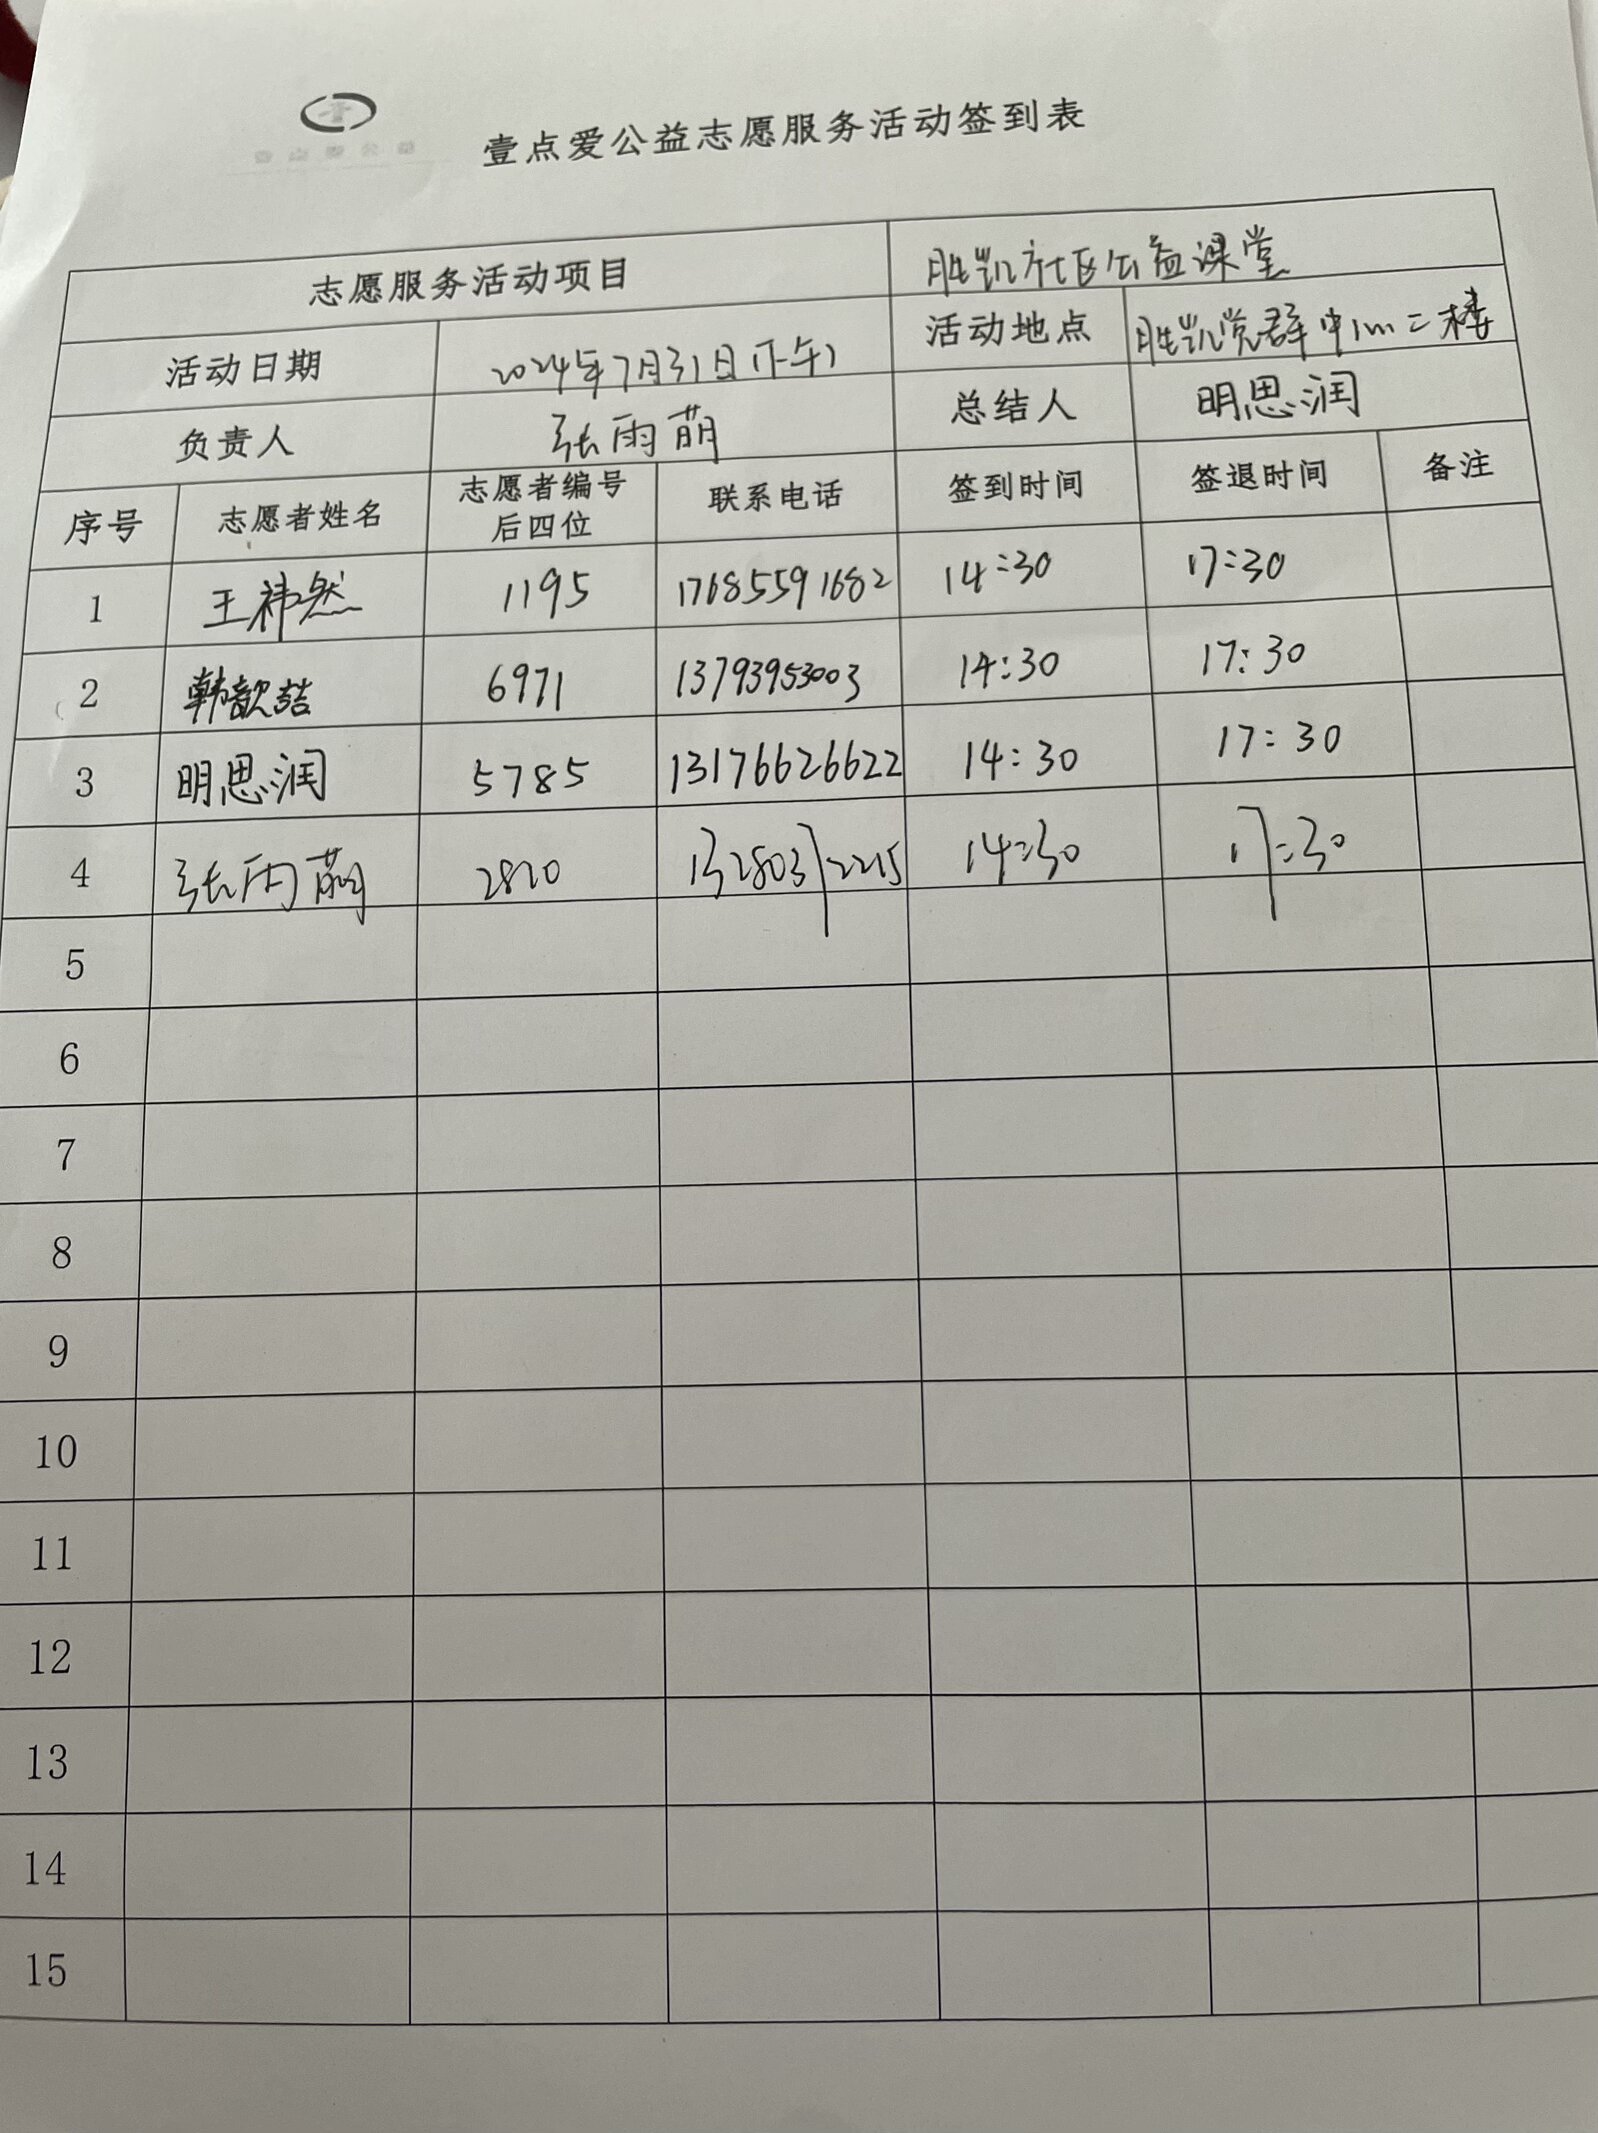 壹点爱公益志愿服务活动签到表
志愿服务活动项目 胜凯社区公益课堂
活动日期 2024年7月31日(下午) 活动地点 胜凯党群中心二楼
负责人 张雨萌 总结人 明思润
序号 志愿者姓名 志愿者编号 联系电话 签到时间 签退时间 备注
后四位
1 王祎然 1195 17685591682 14:30 17:30
2 韩歆喆 6971 13793953003 14:30 17:30
3 明思润 5785 13176626622 14:30 17:30
4 张雨萌 2820 13280372215 14:30 17:30
5
6
7
8
9
10
11
12
13
14
15